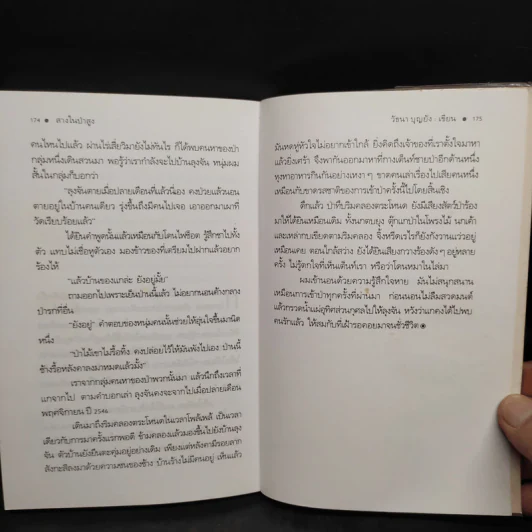 174 ● สางในป่าสูง
คนไหนไปแล้ว ผ่านไร่เสี่ยวิมายังไม่ทันไร ก็ได้พบคนหาของป่า
กลุ่มหนึ่งเดินสวนมา พอรู้ว่าเรากำลังจะไปบ้านลุงจัน หนุ่มผม
สั้นในกลุ่มก็บอกว่า
"ลุงจันตายเมื่อปลายเดือนที่แล้วนี่เอง คงป่วยแล้วนอน
ตายอยู่ในบ้านคนเดียว รุ่งขึ้นถึงมีคนไปเจอ เอาออกมาเผาที่
วัดเรียบร้อยแล้ว"
ได้ยินคำพูดนั้นแล้วเหมือนกับโดนไฟช็อต รู้สึกชาไปทั้ง
ตัว แทบไม่เชื่อหูตัวเอง มองข้าวของที่เตรียมไปฝากแล้วอยาก
ร้องไห้
"แล้วบ้านของแกล่ะ ยังอยู่มั้ย"
ถามออกไปเพราะเย็นป่านนี้แล้ว ไม่อยากนอนค้างกลาง
ป่ารกที่อื่น
"ยังอยู่" คำตอบของหนุ่มคนนั้นช่วยให้อุ่นใจขึ้นมานิด
หนึ่ง
"ป่าไม้เขาไม่รื้อทิ้ง คงปล่อยไว้ให้มันพังไปเอง ป่านนี้
ช้างรื้อหลังคาลงมาหมดแล้วมั้ง"
เราจากกลุ่มคนหาของป่าพวกนั้นมา แล้วนึกถึงเวลาที่
แกจากไป ตามคำบอกเล่า ลุงจันคงจะจากไปเมื่อปลายเดือน
พฤศจิกายน ปี 2546
เดินมาถึงริมคลองตะระโหนดในเวลาโพล้เพล้ เป็นเวลา
เดียวกับการมาครั้งแรกพอดี ข้ามคลองแล้วมองขึ้นไปยังบ้านลุง
จัน ตัวบ้านยังยืนตะคุ่มอยู่อย่างเดิม เพียงแต่หลังคามีรอยลาก
สังกะสีลงมาด้วยความซนของช้าง บ้านร้างไม่มีคนอยู่ เห็นแล้ว
วัธนา บุญยัง : เขียน ● 175
มันหดหู่หัวใจไม่อยากเข้าใกล้ ยิ่งคิดถึงเจ้าของที่เราตั้งใจมาหา
แล้วยิ่งเศร้า จึงพากันออกมาหาที่กางเต็นท์ชายป่าอีกด้านหนึ่ง
หุงหาอาหารกินกันอย่างเหงา ๆ ขาดคนเล่าเรื่องไปเสียคนหนึ่ง
เหมือนกับขาดรสชาติของการเข้าป่าครั้งนี้ไปโดยสิ้นเชิง
ดึกแล้ว ป่าที่บริมคลองตระโหนด ยังมีเสียงสัตว์ป่าร้อง
มาให้ได้ยินเหมือนเดิม ทั้งนกตบยูง ตุ๊กแกป่าในโพรงไม้ นกเค้า
และเหล่ากบเขียดตามริมคลอง จิ้งหรีดเรไรก็ยังกังวานแว่วอยู่
เหมือนเคย ตอนใกล้สว่าง ยังได้ยินเสียงกวางร้องดัง ๆ อยู่หลาย
ครั้ง ไม่รู้ตกใจที่เห็นเต็นท์เรา หรือว่าโดนหมาในไล่มา
ผมเข้านอนด้วยความรู้สึกใจหาย มันไม่สนุกสนาน
เหมือนการเข้าป่าทุกครั้งที่ผ่านมา ก่อนนอนไม่ลืมสวดมนต์
แล้วกรวดน้ำแผ่อุทิศส่วนกุศลไปให้ลุงจัน หวังว่าแกคงได้ไปพบ
คนรักแล้ว ให้สมกับที่เฝ้ารอคอยมาจนชั่วชีวิต◉